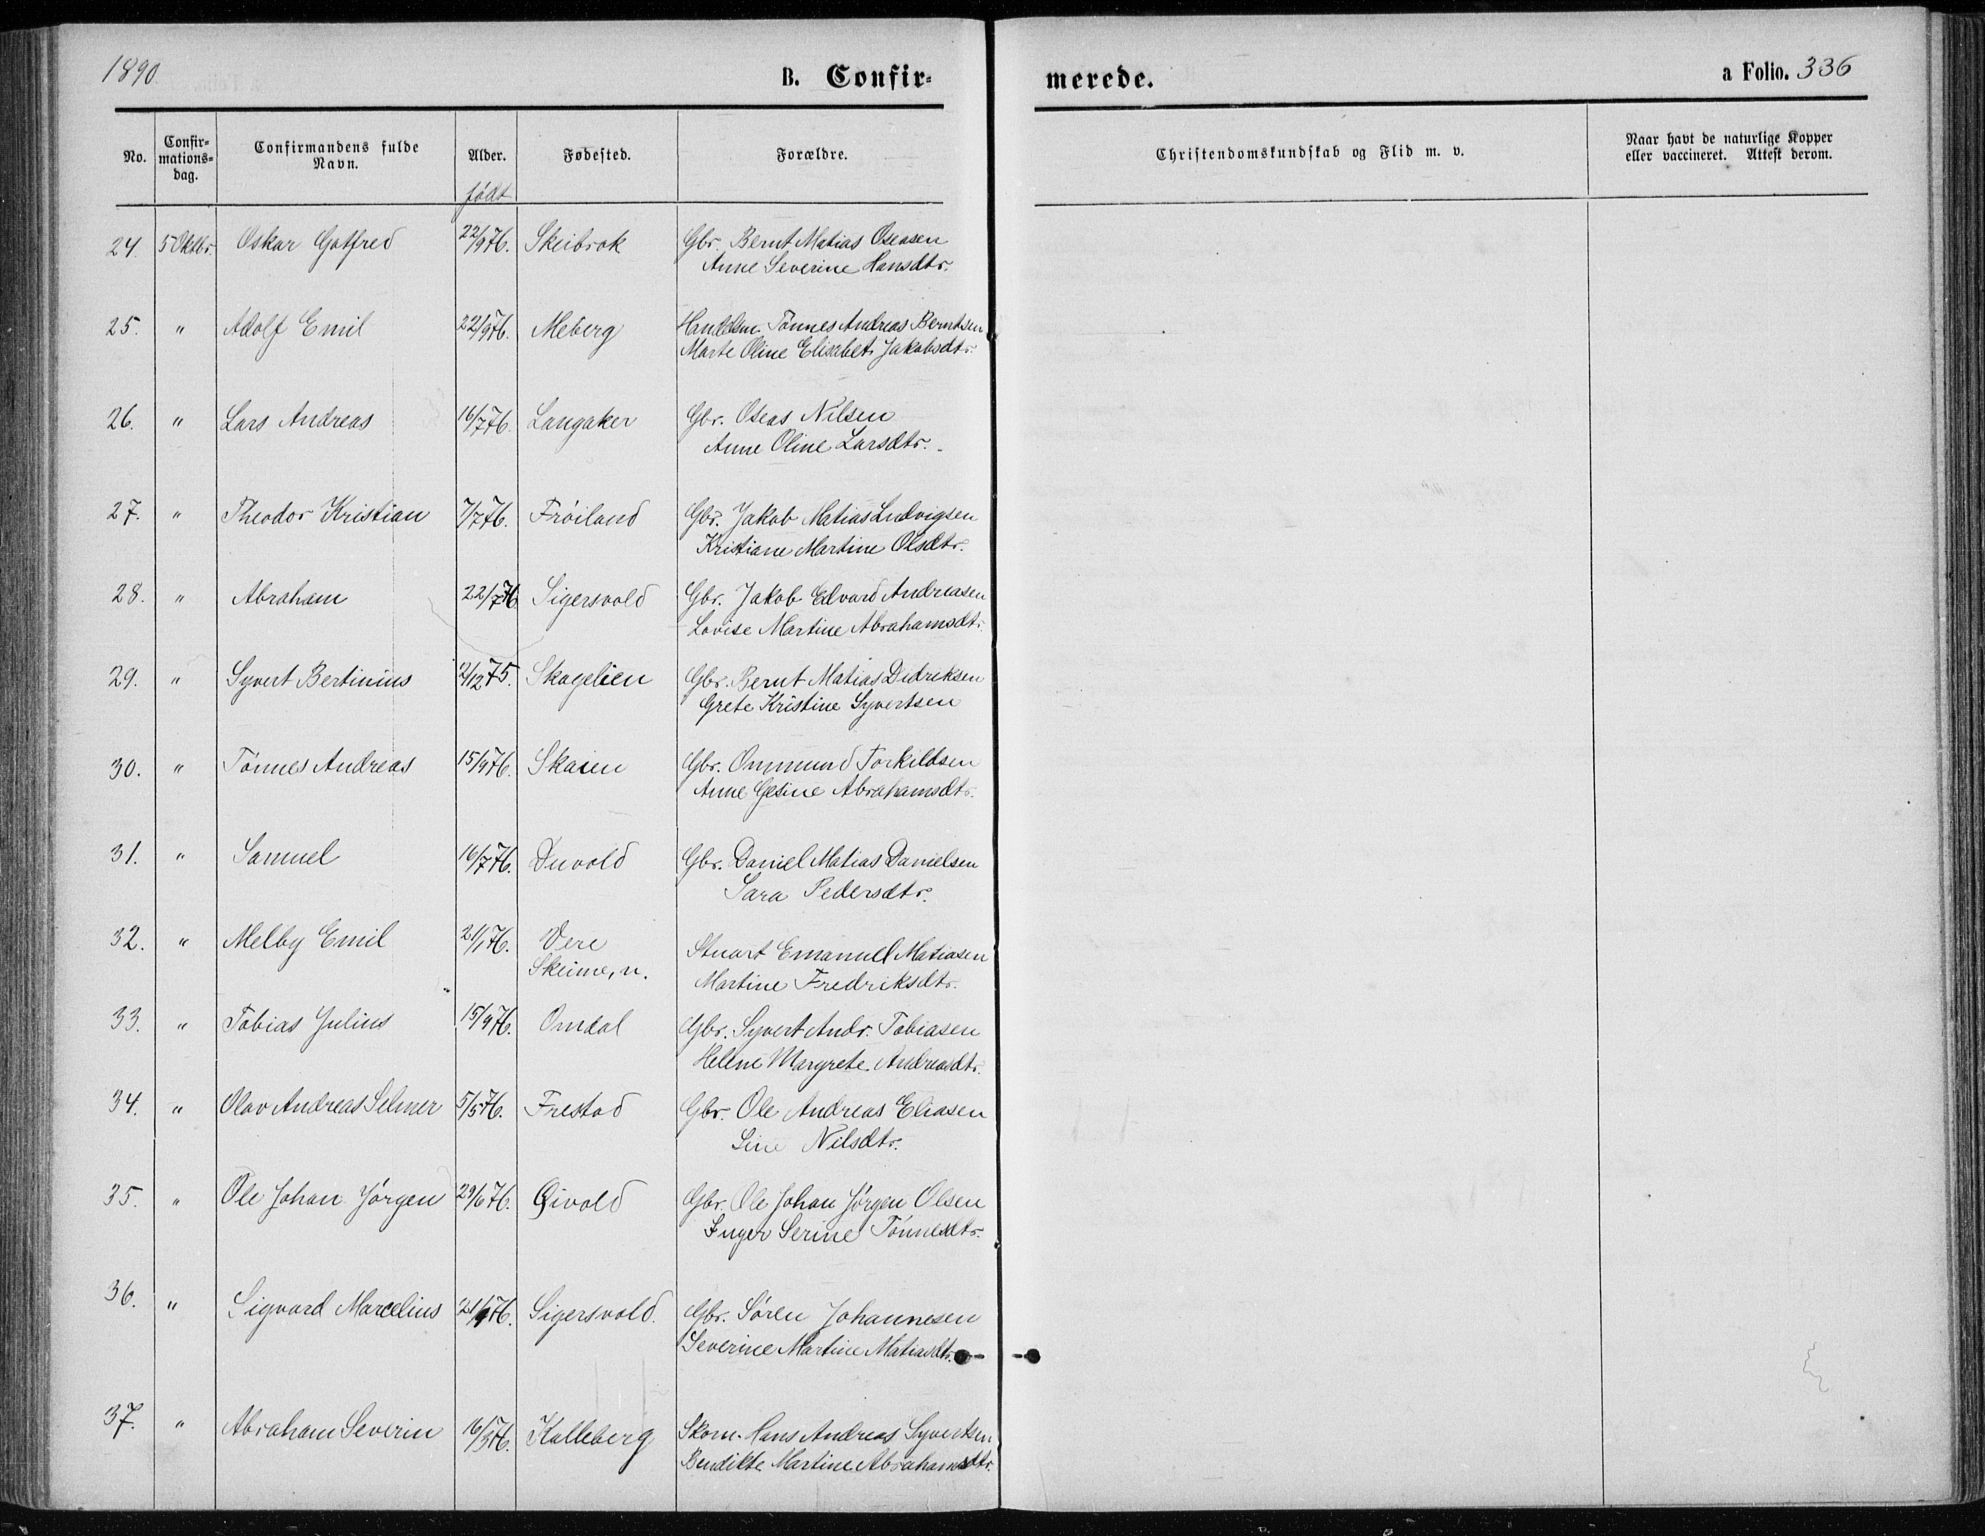 1890. B. Confir- merede. a Folio. 336
No. Confir-mations-dag. Confirmandens fulde Navn. Alder. Fødested. Forældre. Christendomskundskab og Flid m. v. Naar havt de naturlige Kopper eller vaccineret. Attest derom.
født
24. 5 Oktbr. Oskar Gotfred 22/9 76. Skeibrok Gbr. Bernt Matias Oseasen
Anne Severine Hansdtr.
25. " Adolf Emil 22/9 76. Meberg Handelsm. Tønnes Andreas Berntsen
Marte Oline Elisabet Jakobsdtr.
26. " Lars Andreas 16/7 76. Langaker Gbr. Oseas Nilsen
Anne Oline Larsdtr.
27. " Theodor Kristian 7/7 76. Frøiland Gbr. Jakob Matias Ludvigsen
Kristiane Martine Olsdtr.
28. " Abraham 22/7 76 Sigersvold Gbr. Jakob Edvard Andreasen
Lovise Martine Abrahamsdtr.
29. " Syvert Bertinius 2/12 75. Skogelien Gbr. Bernt Matias Didriksen
Grete Kristine Syvertsen
30. " Tønnes Andreas 15/9 76. Skaien Gbr. Ommund Torkildsen
Anne Gesine Abrahamsdtr.
31. " Samuel 16/7 76. Duvold Gbr. Daniel Matias Danielsen
Sara Pedersdtr.
32. " Melby Emil 21/1 76. Vere
Skeime, n. Stuart Emanuel Matiasen
Martine Fredriksdtr.
33. " Tobias Julius 15/9 76. Omdal Gbr. Syvert Andr. Tobiasen
Helene Margrete Andreasdtr.
34. " Olav Andreas Selmer 5/5 76. Frestad Gbr. Ole Andreas Eliasen
Sine Nilsdtr.
35. " Ole Johan Jørgen 29/6 76. Qivold Gbr. Ole Johan Jørgen Olsen
Inger Serine Tønnesdtr.
36. " Sigvard Marcelius 21/9 76. Sigersvold. Gbr. Søren Johannesen
Severine Martine Matiasdtr.
37. " Abraham Severin 16/5 76. Kalleberg Skom. Hans Andreas Syvertsen
Bendikte Martine Abrahamsdtr.